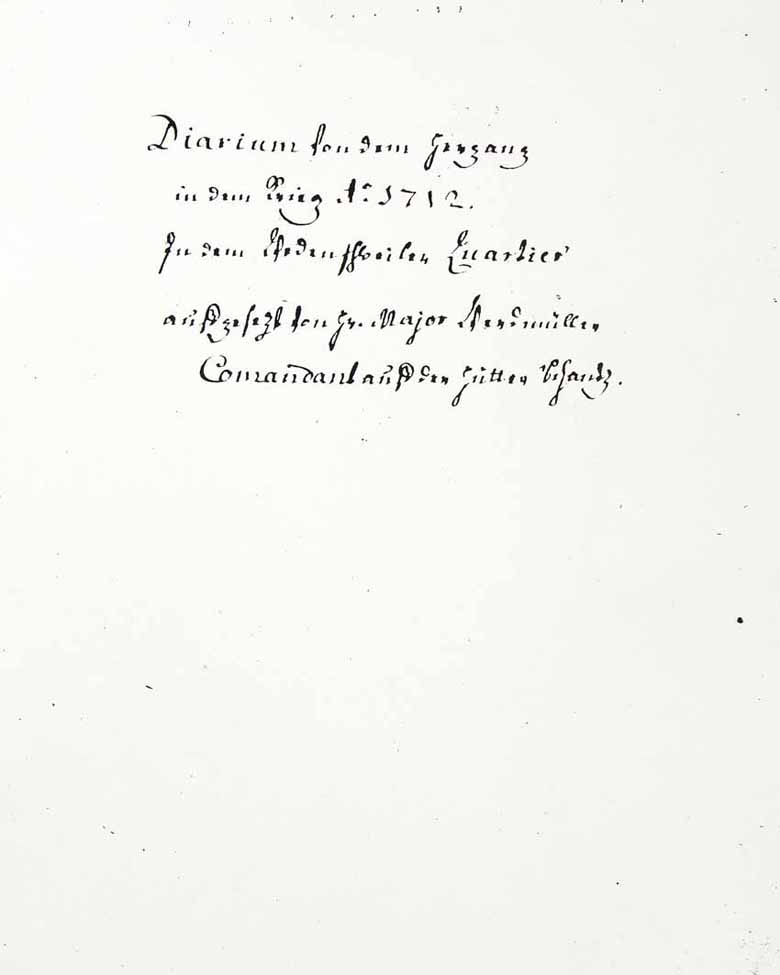 Diarium von dem Hergang
in dem Krieg Ao 1712.
In dem Wedenschweiler Quartier
auffgesezt von Hr. Major Werdmüller
Comandant auff der Hütten Schantz.